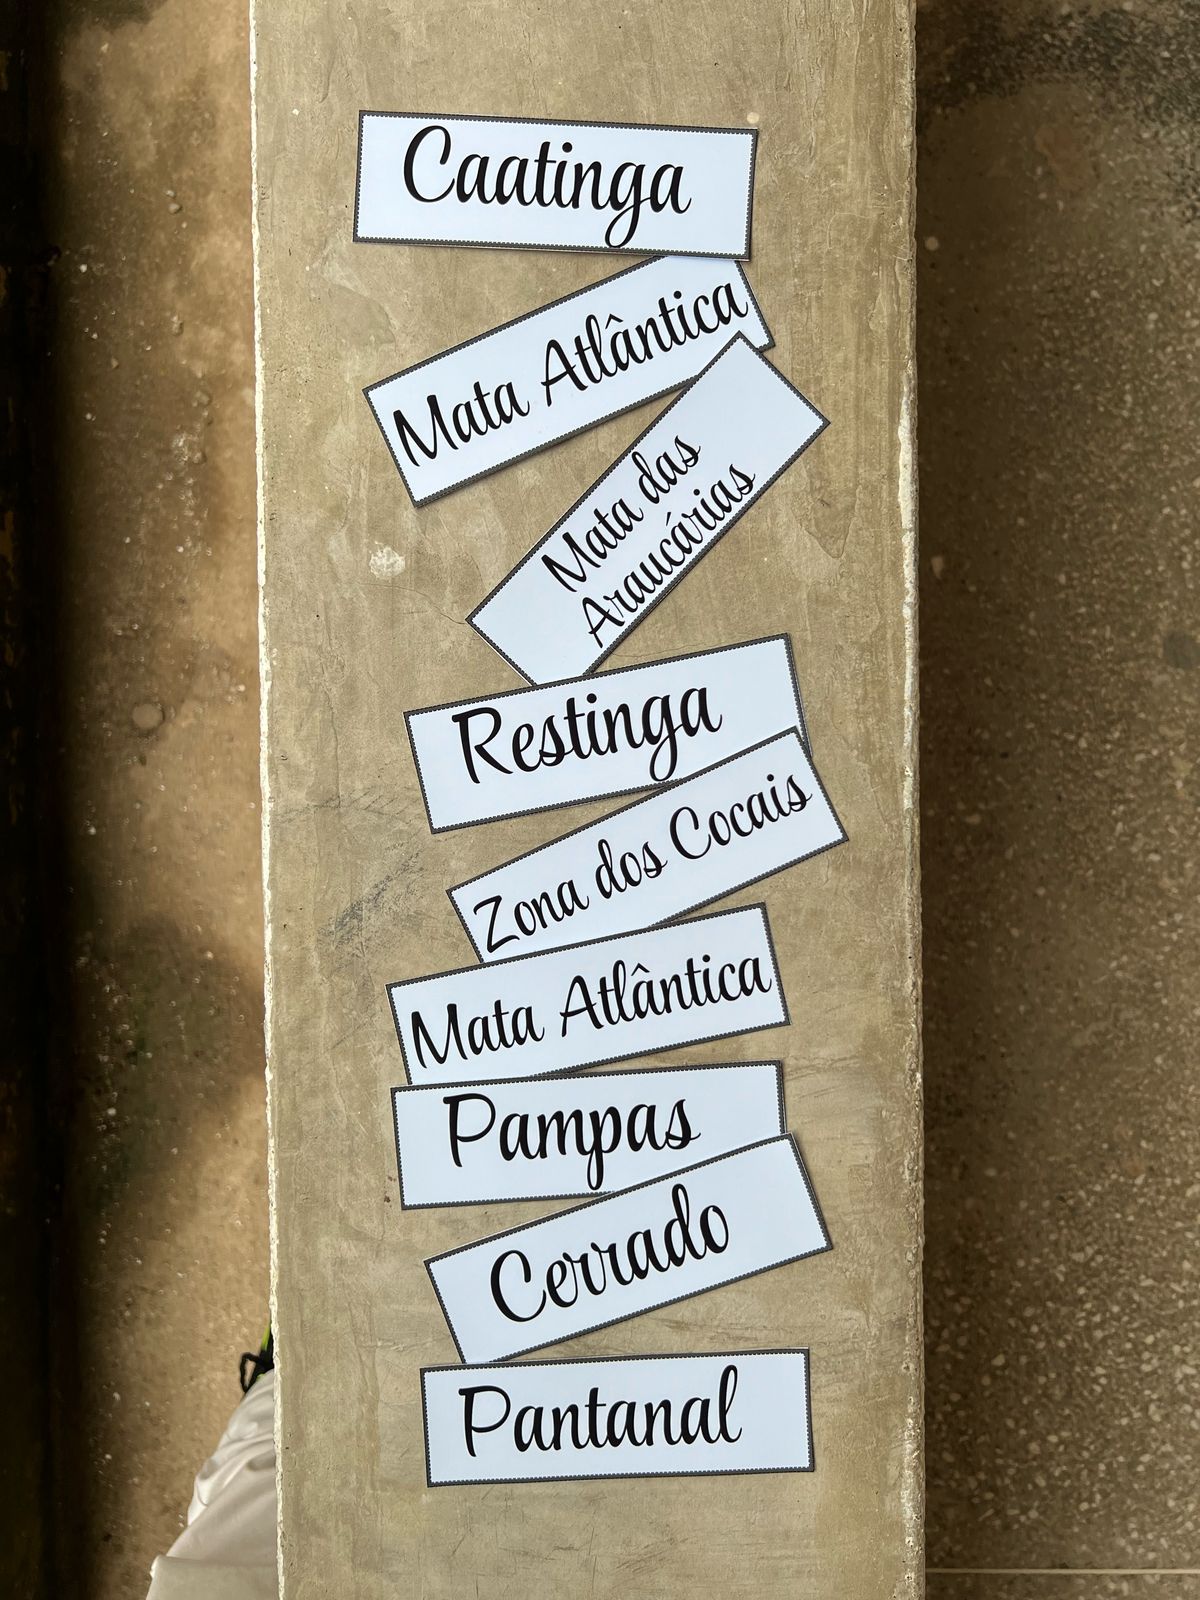 Caatinga
Mata Atlântica
Mata das
Araucárias
Restinga
Zona dos Cocais
Mata Atlântica
Pampas
Cerrado
Pantanal